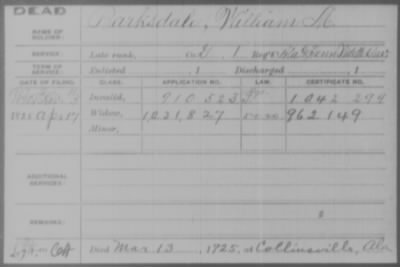 DEAD
NAME OF SOLDIER: Barksdale, William M.
SERVICE: Late rank, Co. D, 1 Reg't Ala & Tenn Vidette Cav
TERM OF SERVICE: Enlisted , 1 Discharged , 1
DATE OF FILING. CLASS. APPLICATION NO. LAW. CERTIFICATE NO.
Invalid, 910523 1042 299
1925 Apr 17 Widow, 1,231,827 962149
Minor,
ADDITIONAL SERVICES:
REMARKS:
Died Mar 13, 1925, at Collinsville, Ala